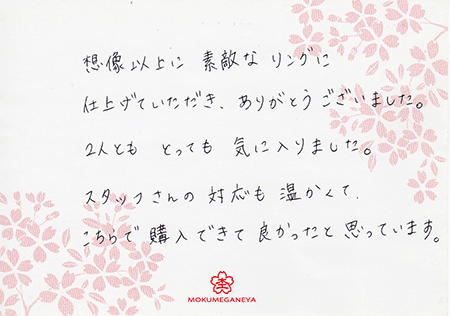 想像以上に 素敵な リングに
仕上げていただき、ありがとうございました。
2人とも とっても 気に入りました。
スタッフさんの 対応も 温かくて、
こちらで 購入できて 良かったと 思っています。
MOKUMEGANEYA